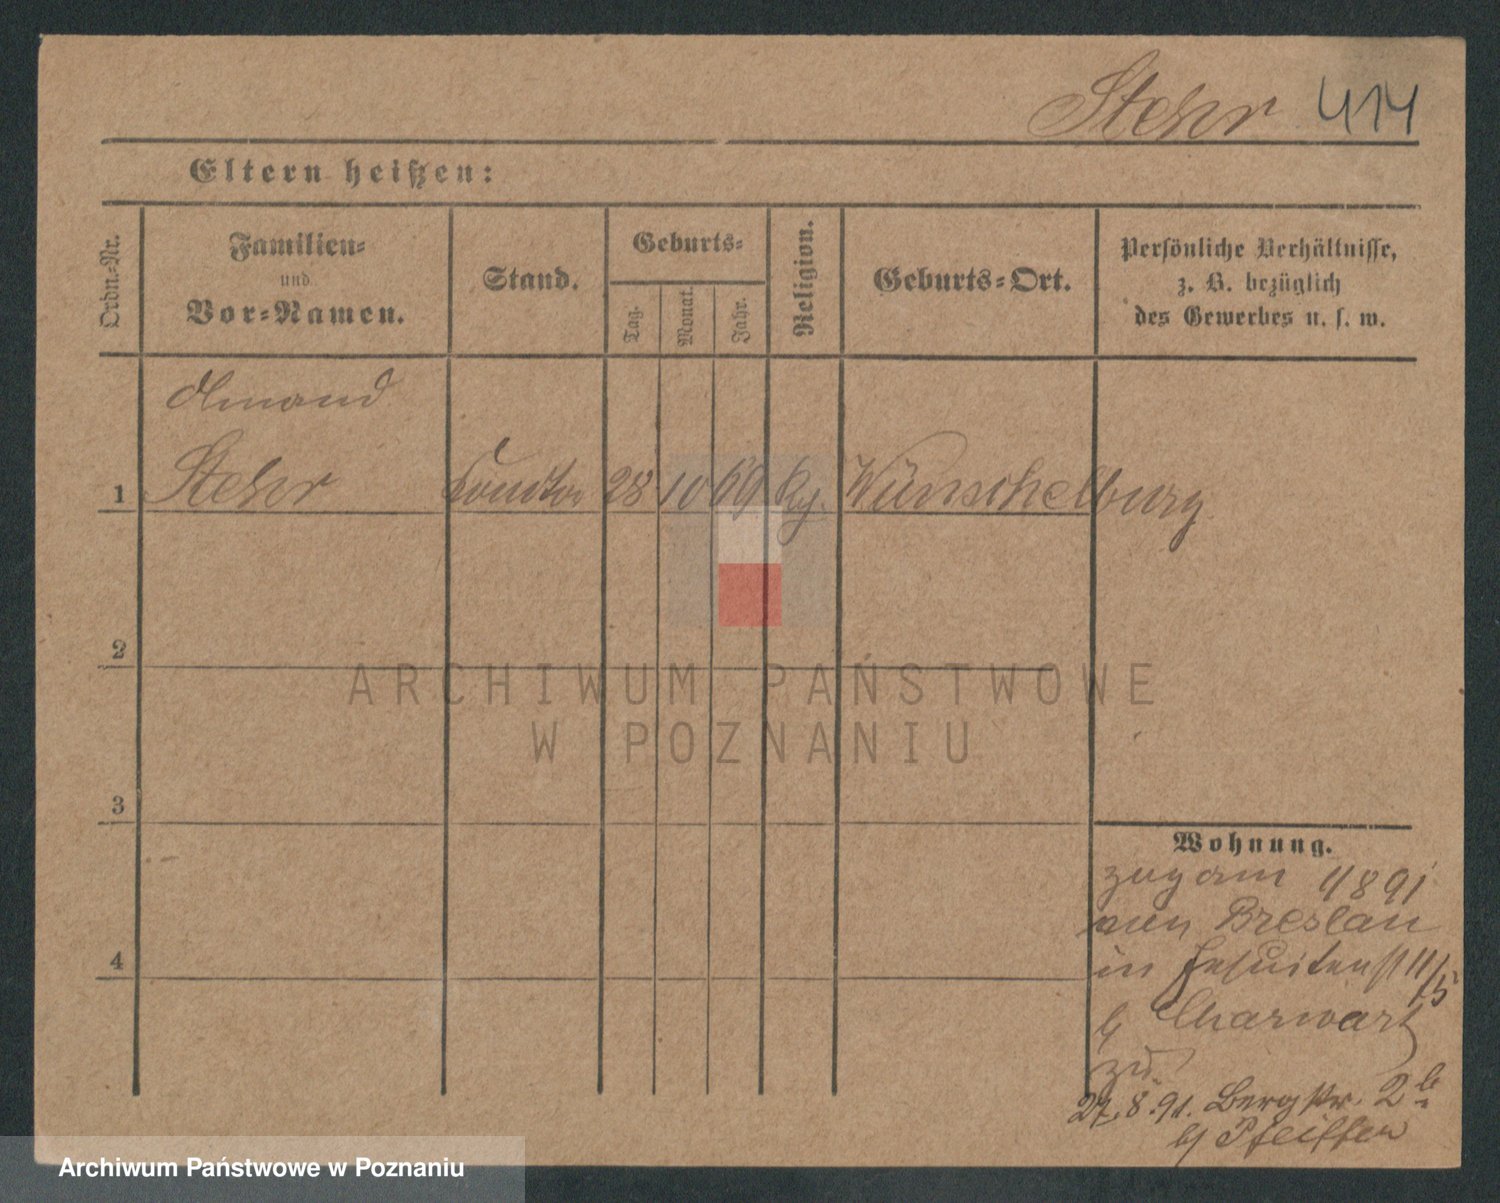 Stehr 414
Eltern heißen:
Ordn.=Nr.
Familien=
und
Vor=Namen.
Stand.
Geburts=
Tag.
Monat.
Jahr.
Religion.
Geburts=Ort.
Persönliche Verhältnisse,
z. B. bezüglich
des Gewerbes u. s. w.
Amand
1 Stehr Conditor 28 10 69 Wünschelburg
2
3
4
ARCHIWUM PAŃSTWOWE
W POZNANIU
Wohnung.
zugam 4 8 91
von Breslau
in Jesuitenst 11/5
b Charwart
zu
27.8.91. Bergstr. 2b
b Pfeiffer
Archiwum Państwowe w Poznaniu